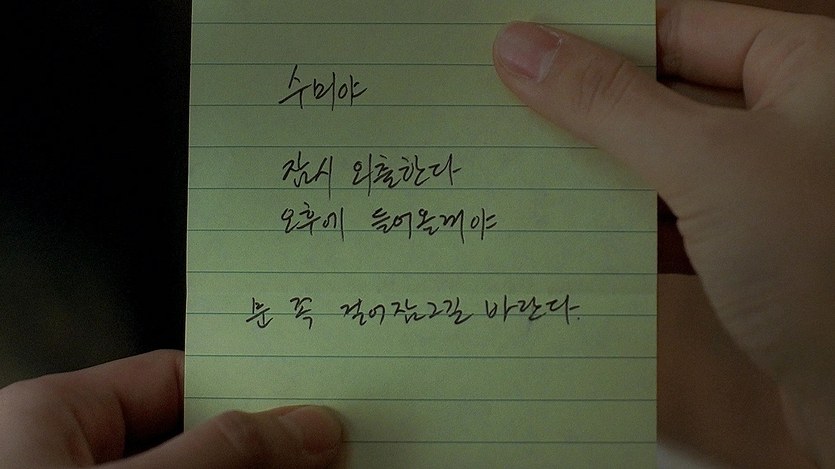 수미야
잠시 외출한다
오후에 들어올꺼야
문 꼭 걸어잠그길 바란다.